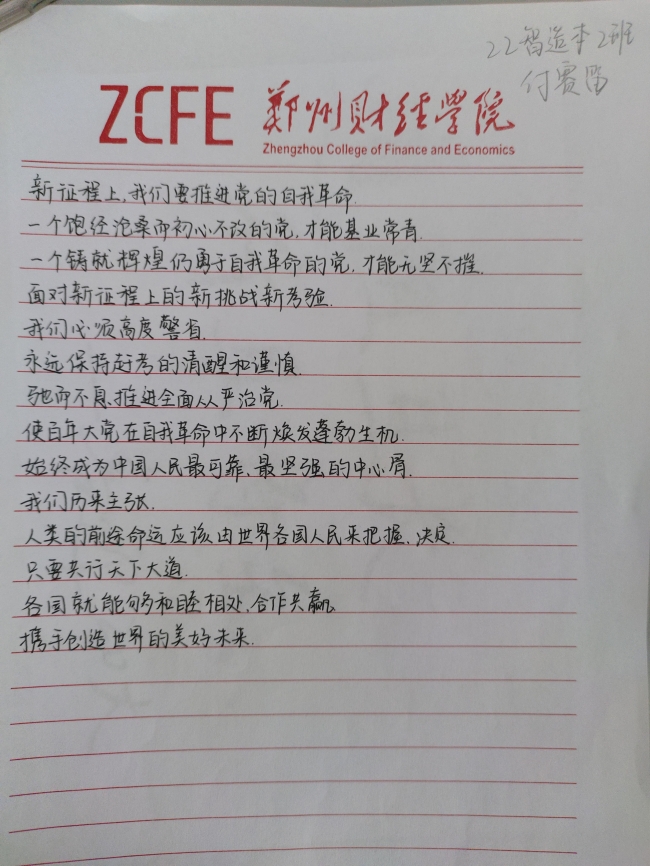 22智造本2班
付赛
ZCFE 郑州财经学院
Zhengzhou College of Finance and Economics
新征程上,我们要推进党的自我革命.
一个饱经沧桑而初心不改的党,才能基业常青.
一个铸就辉煌仍勇于自我革命的党,才能无坚不摧.
面对新征程上的新挑战新考验.
我们必须高度警省.
永远保持赶考的清醒和谨慎.
驰而不息推进全面从严治党.
使百年大党在自我革命中不断焕发蓬勃生机.
始终成为中国人民最可靠、最坚强的中心肩.
我们历来主张.
人类的前途命运应该由世界各国人民来把握、决定.
只要共行天下大道.
各国就能够和睦相处、合作共赢.
携手创造世界的美好未来.